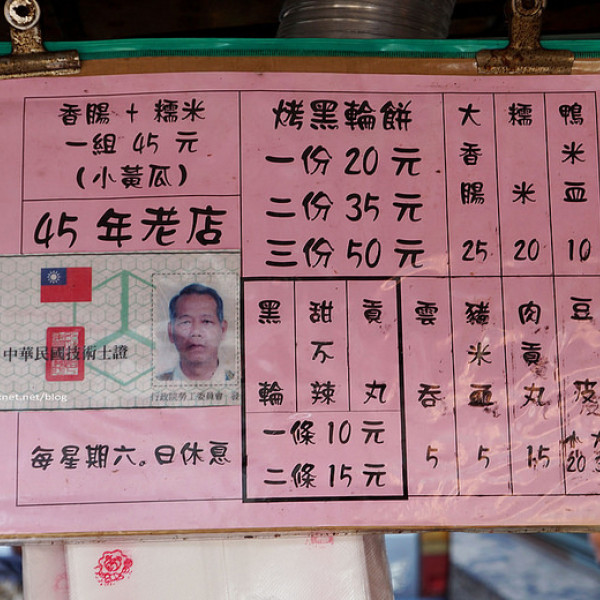 香腸 + 糯米
一組 45 元
(小黃瓜)
45年老店
烤黑輪餅
一份 20 元
二份 35 元
三份 50 元
大香腸 25
糯米 20
鴨米血 10
中華民國技術士證
行政院勞工委員會
net.net/blog
每星期六。日休息
黑輪
甜不辣
貢丸
一條 10 元
二條 15 元
雲吞 5
豬米血 5
肉貢丸 15
豆皮
小 20
大 3